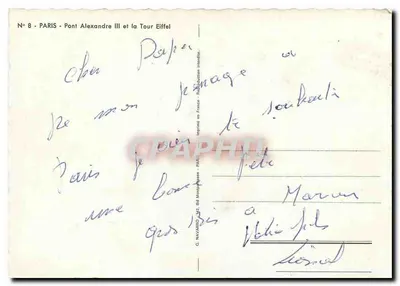 N° 8 - PARIS - Pont Alexandre III et la Tour Eiffel
Cher Papa
De mon passage a
Paris je viens te souhaiter
une bonne fête
gros bis a Maman
Votre fils
Lionel
CPAPHIL